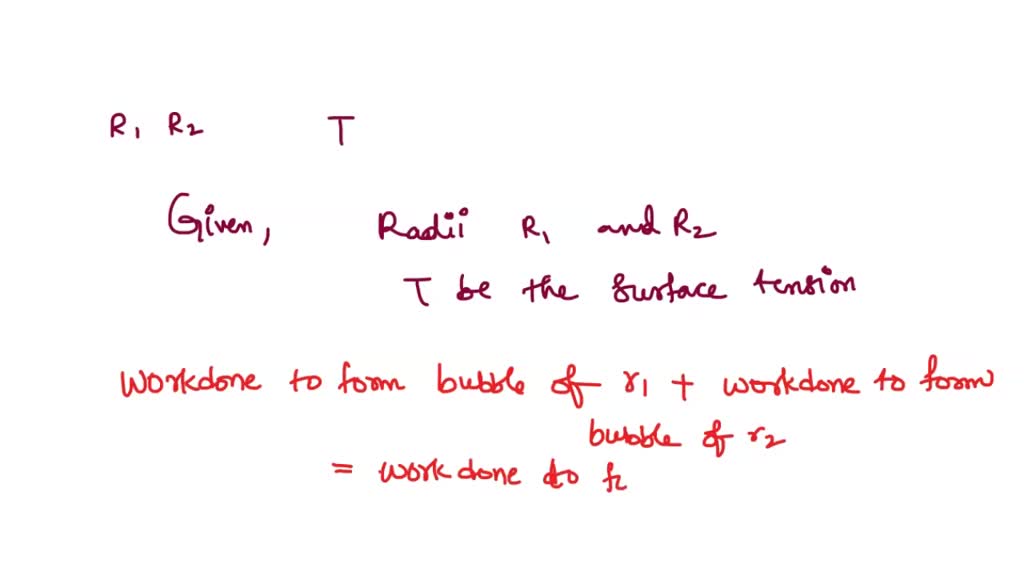 R1 R2 T
Given, Radii R1 and R2
T be the surface tension
workdone to form bubble of r1 + workdone to form
bubble of r2
= workdone to fo